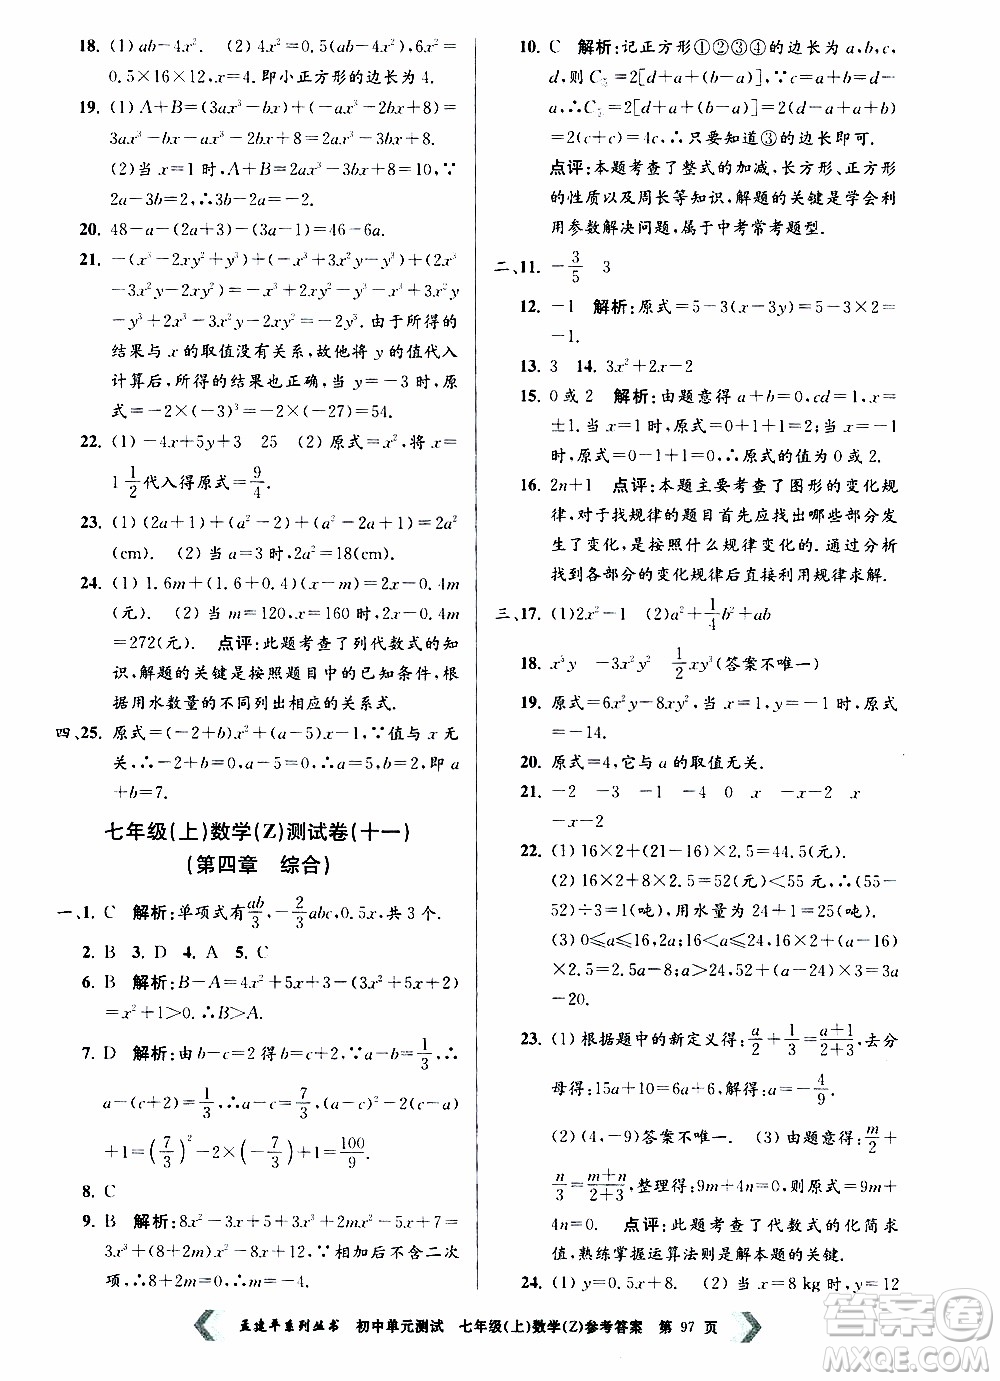 18. (1) ab-4x². (2) 4x²=0.5(ab-4x²),6x²=
0.5×16×12,x=4. 即小正方形的边长为 4.
19. (1) A+B=(3ax³-bx)+(-ax³-2bx+8)=
3ax³-bx-ax³-2bx+8=2ax³-3bx+8.
(2)当 x=1 时,A+B=2ax³-3bx+8=10,∵
2a-3b=2,∴3b-2a=-2.
20. 48-a-(2a+3)-(3a-1)=46-6a.
21. -(x³-2xy²+y³)+(-x³+3x²y-y³)+(2x³
-3x²y-2xy²)=-x³+2xy²-y³-x³+3x²y
-y³+2x³-3x²y-2xy²=-2y³. 由于所得的
结果与 x 的取值没有关系,所以将 y 的值代入
计算后,所得的结果也正确. 当 y=-3 时,原
式=-2×(-3)³=-2×(-27)=54.
22. (1) -4x+5y+3 25 (2) 原式=x²,将 x=
1 1/2 代入得原式=9/4.
23. (1) (2a+1)+(a²-2)+(a²-2a+1)=2a²
(cm). (2) 当 a=3 时,2a²=18(cm).
24. (1) 1.6m+(1.6+0.4)(x-m)=2x-0.4m
(元). (2) 当 m=120,x=160 时,2x-0.4m
=272(元). 点评:此题考查了列代数式的知
识,解题的关键是按照题目中的已知条件,根
据用水数量的不同列出相应的关系式.
四、25. 原式=(-2+b)x²+(a-5)x-1,∵值与 x 无
关,∴-2+b=0,a-5=0,∴a=5,b=2,即 a
+b=7.
七年级(上)数学(Z)测试卷(十一)
(第四章 综合)
一、1. C 解析:单项式有ab/3,-2/3abc,0.5x,共 3 个.
2. B 3. D 4. A 5. C
6. B 解析:B-A=4x²+5x+6-(3x²+5x+5)
=x²+1>0.∴B>A.
7. D 解析:由 b-c=2 得 b=c+2,∵a-b=1/3,∴
a-(c+2)=1/3,∴a-c=7/3,∴(a-c)²-(c-a)
+1=(7/3)²-(-7/3)+1=100/9.
8. C
9. B 解析:8x²-3x+5+3x³+2mx²-5x+3=
3x³+(8+2m)x²-8x+8,∵相加后不含二次
项,∴8+2m=0,m=-4.
10. C 解析:记正方形①②③④的边长为 a,b,c,
d,则 C₅=2[d+a+(b-a)],∵c=d+a+(b-
a),∴C₅=2[d+a+(b-a)]=2[d+a+(b-a)]
=2(c)=4c,∴只要知道③的边长即可.
点评:本题考查了整式的加减,长方形、正方形
的性质以及周长等知识,解题的关键是学会利
用参数解决问题,属于中考常考题型.
二、11. -3/5 3
12. -1 解析:原式=5-3(x-3y)=5-3×2=
-1.
13. 3 14. 3x²+2x-2
15. 0 或 2 解析:由题意得 a+b=0,cd=1,x=
±1.当 x=1 时,原式=0+1+1=2;当 x=-1
时,原式=0+1-1=0,∴原式的值为 0 或 2.
16. 2n+1 点评:本题主要考查了图形的变化规
律,对于找规律的题目首先应找出哪些部分发
生了变化,是按照什么规律变化的. 通过分析
找到各部分的变化规律后直接利用规律求解.
三、17. (1)2x²-1 (2)a²+1/4b²+ab
18. x³y -3x²y² 1/2xy³(答案不唯一)
19. 原式=6x²y-8xy²,当 x=1,y=-1 时,原式=
-14.
20. 原式=4,它与 a 的取值无关.
21. -2 -3 -1 -4 0 x -x-2
-x-2
22. (1) 16×2+(21-16)×2.5=44.5(元).
(2) 16×2+(24-16)×2.5=52<55 元,(55-
52)÷3=1(吨),用水量为 24+1=25(吨).
(3) 0≤a≤16,2a;16<a≤24,16×2+(a-16)
×2.5=2.5a-8;a>24,52+(a-24)×3=3a
-20.
23. (1) 根据题中的新定义得:a/2+1/3=a+1/2+3,去分
母得:15a+10=6a+6,解得:a=-4/9.
(2) (4,-9)答案不唯一. (3) 由题意得:m/2+
n/3=m+n/2+3,整理得:9m+4n=0,则原式=9m+
4n=0. 点评:此题考查了代数式的化简求
值,熟练掌握运算法则是解本题的关键.
24. (1) y=0.5x+8 (2) 当 x=8 kg 时,y=12
孟建平系列丛书 初中单元测试 七年级(上)数学(Z)参考答案 第 97 页
答案圈
MXQE.COM